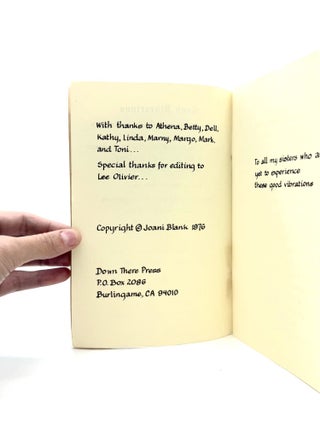 With thanks to Athena, Betty, Dell,
Kathy, Linda, Marny, Margo, Mark,
and Toni...
Special thanks for editing to
Lee Olivier...
Copyright © Joani Blank 1976
Down There Press
P.O. Box 2086
Burlingame, CA 94010
To all my sisters who a
yet to experience
these good vibrations